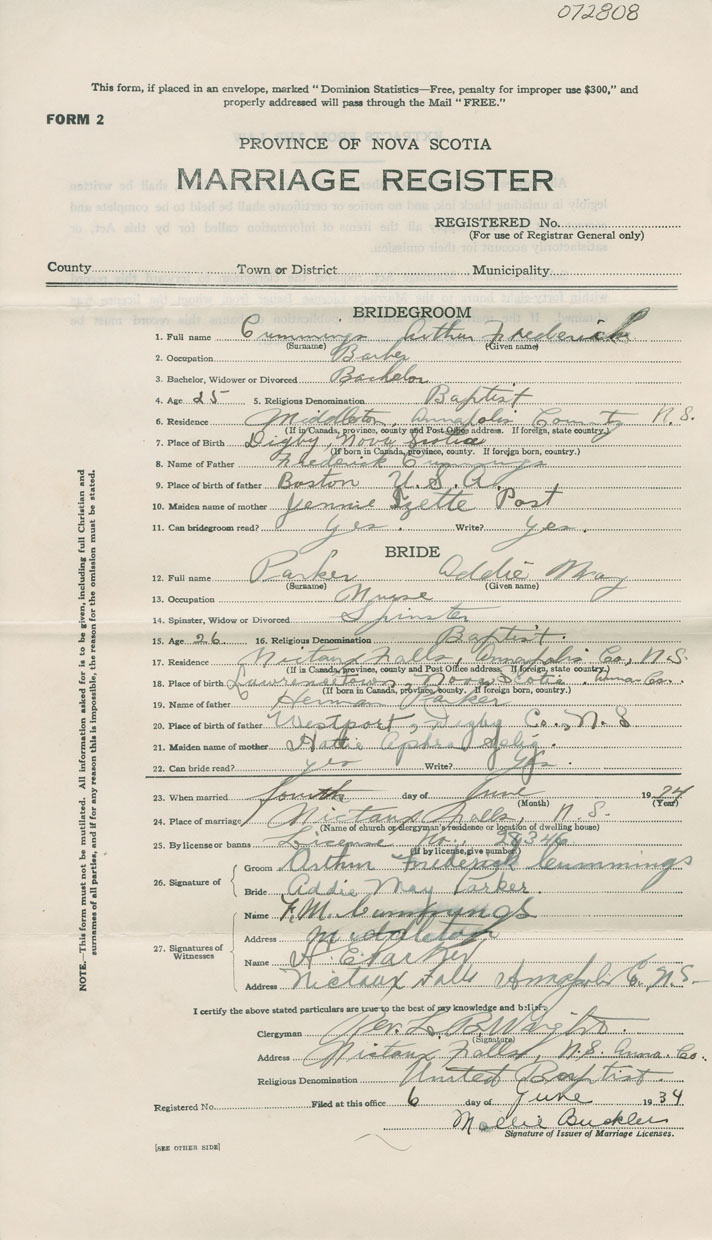 072808
This form, if placed in an envelope, marked "Dominion Statistics—Free, penalty for improper use $300," and
properly addressed will pass through the Mail "FREE."
FORM 2
PROVINCE OF NOVA SCOTIA
MARRIAGE REGISTER
REGISTERED No.
(For use of Registrar General only)
County Town or District Municipality
BRIDEGROOM
1. Full name Cummings Arthur Frederick
(Surname) (Given name)
2. Occupation Barber
3. Bachelor, Widower or Divorced Bachelor
4. Age 25 5. Religious Denomination Baptist
6. Residence Middleton, Annapolis County N.S.
(If in Canada, province, county and Post Office address. If foreign, state country.)
7. Place of Birth Digby, Nova Scotia
(If born in Canada, province, county. If foreign born, country.)
8. Name of Father Frederick Cummings
9. Place of birth of father Boston U.S.A.
10. Maiden name of mother Jennie Izette Post
11. Can bridegroom read? Yes. Write? Yes.
BRIDE
12. Full name Parker Addie May
(Surname) (Given name)
13. Occupation Nurse
14. Spinster, Widow or Divorced Spinster
15. Age 26 16. Religious Denomination Baptist.
17. Residence Nictaux Falls Annapolis Co., N.S.
(If in Canada, province, county and Post Office address. If foreign, state country.)
18. Place of birth Lawrencetown, Nova Scotia. Anna. Co.
(If born in Canada, province, county. If foreign born, country.)
19. Name of father Herman Parker
20. Place of birth of father Westport, Digby Co., N.S
21. Maiden name of mother Hattie
22. Can bride read? yes Write? Yes.
23. When married fourth day of June 1934
(Month) (Year)
24. Place of marriage Nictaux Falls, N.S.
(Name of church or clergyman's residence or location of dwelling house)
25. By license or banns License No. 29346
(If by license, give number)
26. Signature of
Groom Arthur Frederick Cummings
Bride Addie May Parker.
27. Signatures of Witnesses
Name F.M. Cummings
Address Middleton
Name H. E. Parker
Address Nictaux Falls Annapolis C. N.S.
I certify the above stated particulars are true to the best of my knowledge and belief.
Clergyman Rev. L. B. Wright.
(Signature)
Address Nictaux Falls, N.S. Anna. Co.
Religious Denomination United Baptist.
Registered No. Filed at this office 6 day of June 1934
Mollie Buckler
Signature of Issuer of Marriage Licenses.
[SEE OTHER SIDE]
NOTE.—This form must not be mutilated. All information asked for is to be given, including full Christian and
surnames of all parties, and if for any reason this is impossible, the reason for the omission must be stated.